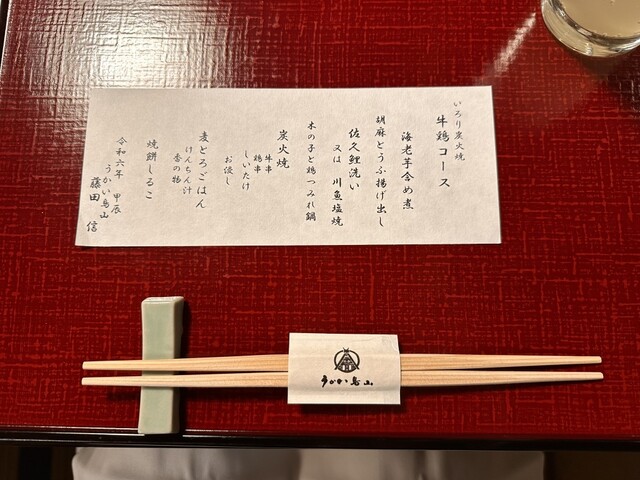 いろり炭火焼
牛鶏コース
海老芋含め煮
胡麻とうふ揚げ出し
佐久鯉洗い
又は 川魚塩焼
木の子と鶏つみれ鍋
炭火焼
牛串
鶏串
しいたけ
お浸し
麦とろごはん
けんちん汁
香の物
焼餅しるこ
令和六年 甲辰
うかい鳥山
藤田 信
うかい鳥山